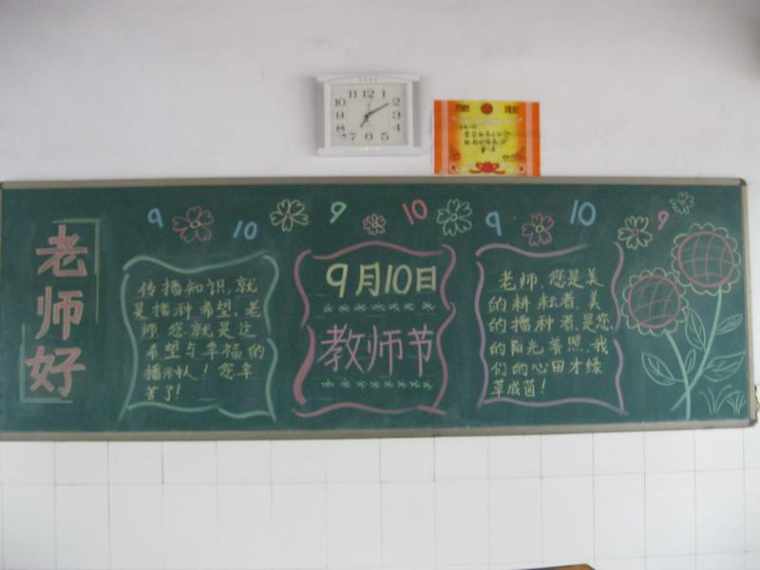 11 12 1
10 2
9 3
8 4
7 6 5
9
10
9
10
9
10
9
老师好
传播知识,就
是播种希望,老
师您就是这
希望与幸福的
播种人!您辛
苦了!
9月10日
教师节
老师,您是美
的耕耘者,美
的播种者,是您
的阳光普照,我
们的心田才绿
草成茵!